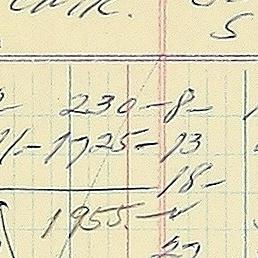 S
230-8-
11-1725-13
18-
1955-✓
27